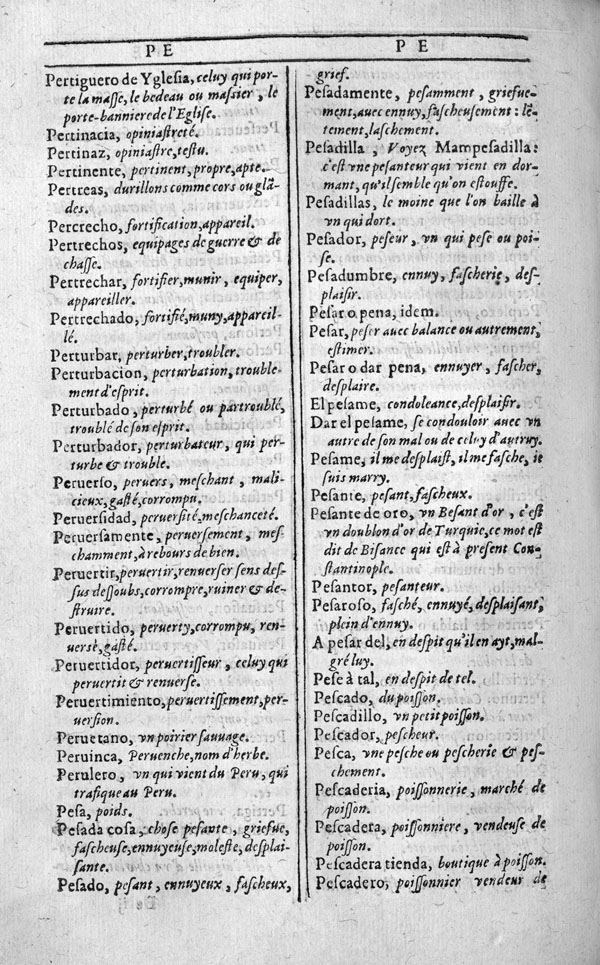 PE
Pertiguero de Yglesia, celuy qui por-
te la masse, le bedeau ou massier, le
porte-banniere de l'Eglise.
Pertinacia, opiniastreté.
Pertinaz, opiniastre, testu.
Pertinente, pertinent, propre, apte.
Pertreas, durillons comme cors ou glã-
des.
Percrecho, fortification, appareil.
Pertrechos, equipages de guerre & de
chasse.
Pertrechar, fortifier, munir, equiper,
appareiller.
Pertrechado, fortifié, muny, appareil-
lé.
Perturbar, perturber, troubler.
Perturbacion, perturbation, trouble-
ment d'esprit.
Perturbado, perturbé ou partroublé,
troublé de son esprit.
Perturbador, perturbateur, qui per-
turbe & trouble.
Peruerso, peruers, meschant, mali-
cieux, gasté, corrompu.
Peruersidad, peruersité, meschanceté.
Peruersamente, peruersement, mes-
chamment, à rebours de bien.
Peruertir, peruertir, renuerser sens des-
sus dessoubs, corrompre, ruiner & de-
struire.
Peruertido, peruerty, corrompu, ren-
uersé, gasté.
Peruertidor, peruertisseur, celuy qui
peruertit & renuerse.
Peruertimiento, peruertissement, per-
uersion.
Peruetano, vn poirier sauuage.
Peruinca, Peruenche, nom d'herbe.
Perulero, vn qui vient du Peru, qui
trafique au Peru.
Pesa, poids.
Pesada cosa, chose pesante, griefue,
fascheuse, ennuyeuse, moleste, desplai-
sante.
Pesado, pesant, ennuyeux, fascheux,
PE
grief.
Pesadamente, pesamment, griefue-
ment, auec ennuy, fascheusement: lẽ-
tement, laschement.
Pesadilla, Voyez Mampesadilla:
c'est vne pesanteur qui vient en dor-
mant, qu'il semble qu'on estouffe.
Pesadillas, le moine que l'on baille à
vn qui dort.
Pesador, peseur, vn qui pese ou poi-
se.
Pesadumbre, ennuy, fascherie, des-
plaisir.
Pesar o pena, idem.
Pesar, peser auec balance ou autrement,
estimer.
Pesar o dar pena, ennuyer, fascher,
desplaire.
El pesame, condoleance, desplaisir.
Dar el pesame, se condouloir auec vn
autre de son mal ou de celuy d'autruy.
Pesame, il me desplaist, il me fasche, ie
suis marry.
Pesante, pesant, fascheux.
Pesante de oro, vn Besant d'or, c'est
vn doublon d'or de Turquie, ce mot est
dit de Bisance qui est à present Con-
stantinople.
Pesantor, pesanteur.
Pesaroso, fasché, ennuyé, desplaisant,
plein d'ennuy.
A pesar del, en despit qu'il en ayt, mal-
gré luy.
Pese à tal, en despit de tel.
Pescado, du poisson.
Pescadillo, vn petit poisson.
Pescador, pescheur.
Pesca, vne pesche ou pescherie & pes-
chement.
Pescaderia, poissonnerie, marché de
poisson.
Pescadera, poissonniere, vendeuse de
poisson.
Pescadera tienda, boutique à poisson.
Pescadero, poissonnier vendeur de